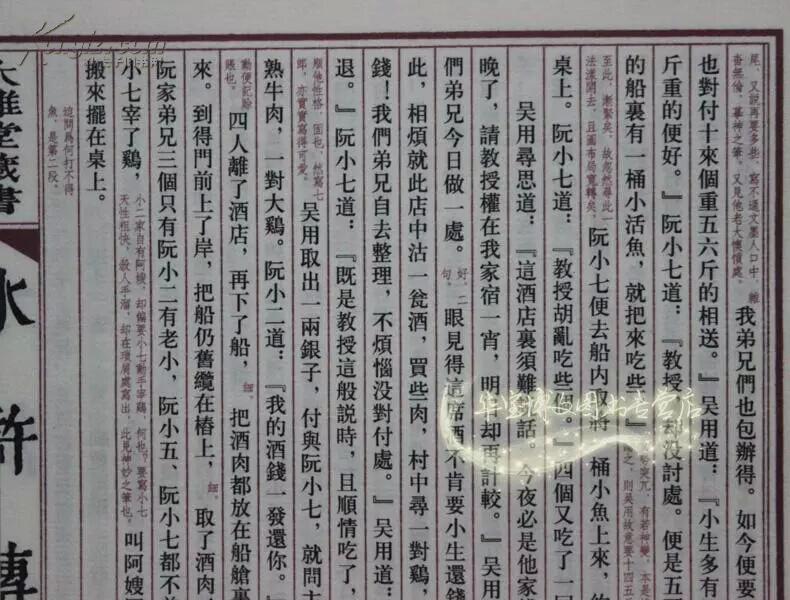 尾、又說再要多些，寫不通文墨人口中，雜
沓無倫，摹神之筆。又見他老大懊憤處。
我弟兄們也包辦得。如今便要
也對付十來個重五六斤的相送。』吳用道：『小生多有
斤重的便好。』阮小七道：『教授，却没討處。便是五
的船裏有一桶小活魚，就把來吃些。』
突兀，有若神變，本是
之，則吳用故意要十四五
至此，漸緊矣，故忽然尋此一
法漾開去，且圖布局寬轉矣。
阮小七便去船内取將一桶小魚上來，約
桌上。阮小七道：『教授胡亂吃些個。』四個又吃了一回
吳用尋思道：『這酒店裏須難說話。今夜必是他家
晚了，請教授權在我家宿一宵，明日却再計較。』吳用
們弟兄今日做一處。
好。二
句。
眼見得這席酒不肯要小生還錢
此，相煩就此店中沽一瓮酒，買些肉，村中尋一對鷄，
錢！我們弟兄自去整理，不煩惱没對付處。』吳用道：
退。』阮小七道：『既是教授這般說時，且順情吃了，
順他性格，固也，然寫七
郎，亦實實寫得可愛。
吳用取出一兩銀子，付與阮小七，就問主
熟牛肉，一對大鷄。阮小二道：『我的酒錢一發還你。』
勤便記賒
賬也。
四人離了酒店，再下了船，
細。
把酒肉都放在船艙裏
來。到得門前上了岸，把船仍舊纜在樁上，
細。
取了酒肉
阮家弟兄三個只有阮小二有老小，阮小五、阮小七都不
小七宰了鷄，
小二家自有阿嫂，却偏要小七動手宰鷄，何也？要寫小七
天性粗快，殺人手溜，却在瑣屑處寫出，此見神妙之筆也。
叫阿嫂
搬來擺在桌上。
這問爲何打不得
魚，是第二段。
大雅堂藏書
水滸傳